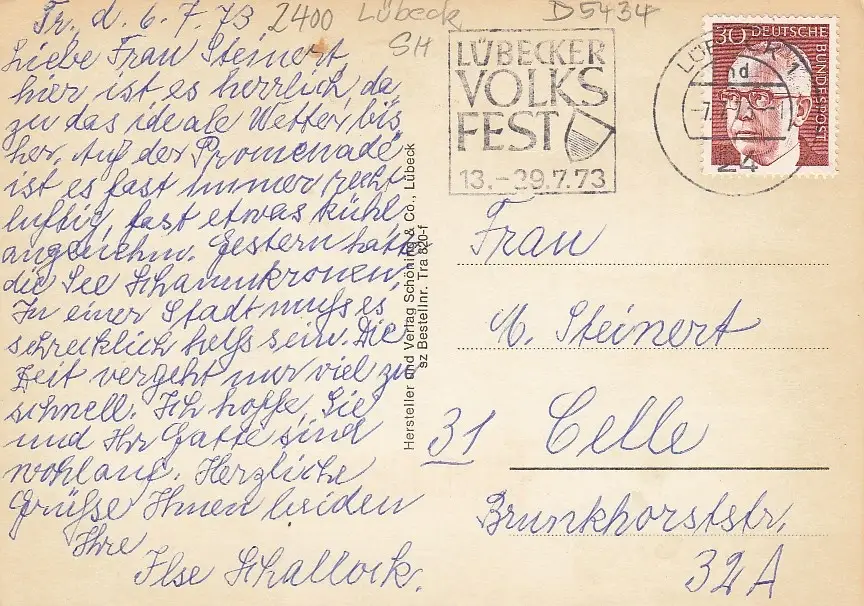 Tr. d. 6. 7. 73
Liebe Frau Steinert,
hier ist es herrlich, da
zu das ideale Wetter, bis
her. Auf der Promenade
ist es fast immer recht
luftig, fast etwas kühl-
angenehm. Gestern hatte
die See Schaumkronen.
In einer Stadt muß es
schrecklich heiß sein. Die
Zeit vergeht nur viel zu
schnell. Ich hoffe, Sie
und Ihr Gatte sind
wohlauf. Herzliche
Grüße Ihnen beiden
Ihre
Ilse Schallock.
2400 Lübeck
SH
D5434
LÜBECKER
VOLKS
FEST
13.-29.7.73
24
30 DEUTSCHE
BUNDESPOST
Hersteller und Verlag Schöning & Co., Lübeck
sz Bestellnr. Tra 820-f
Frau
M. Steinert
31 Celle
Brunkhorststr.
32A